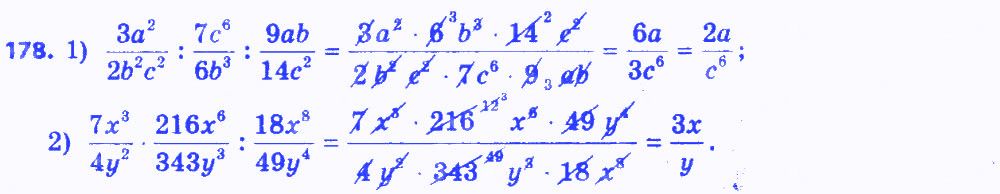 178. 1) \frac{3a^2}{2b^2c^2} : \frac{7c^6}{6b^3} : \frac{9ab}{14c^2} = \frac{3a^2 · 6^3 b^3 · 14^2 c^2}{2b^2 c^2 · 7c^6 · 9_3 ab} = \frac{6a}{3c^6} = \frac{2a}{c^6};
2) \frac{7x^3}{4y^2} · \frac{216x^6}{343y^3} : \frac{18x^8}{49y^4} = \frac{7x^3 · 216^{12^3} x^6 · 49y^4}{4y^2 · 343^{49} y^3 · 18x^8} = \frac{3x}{y}.